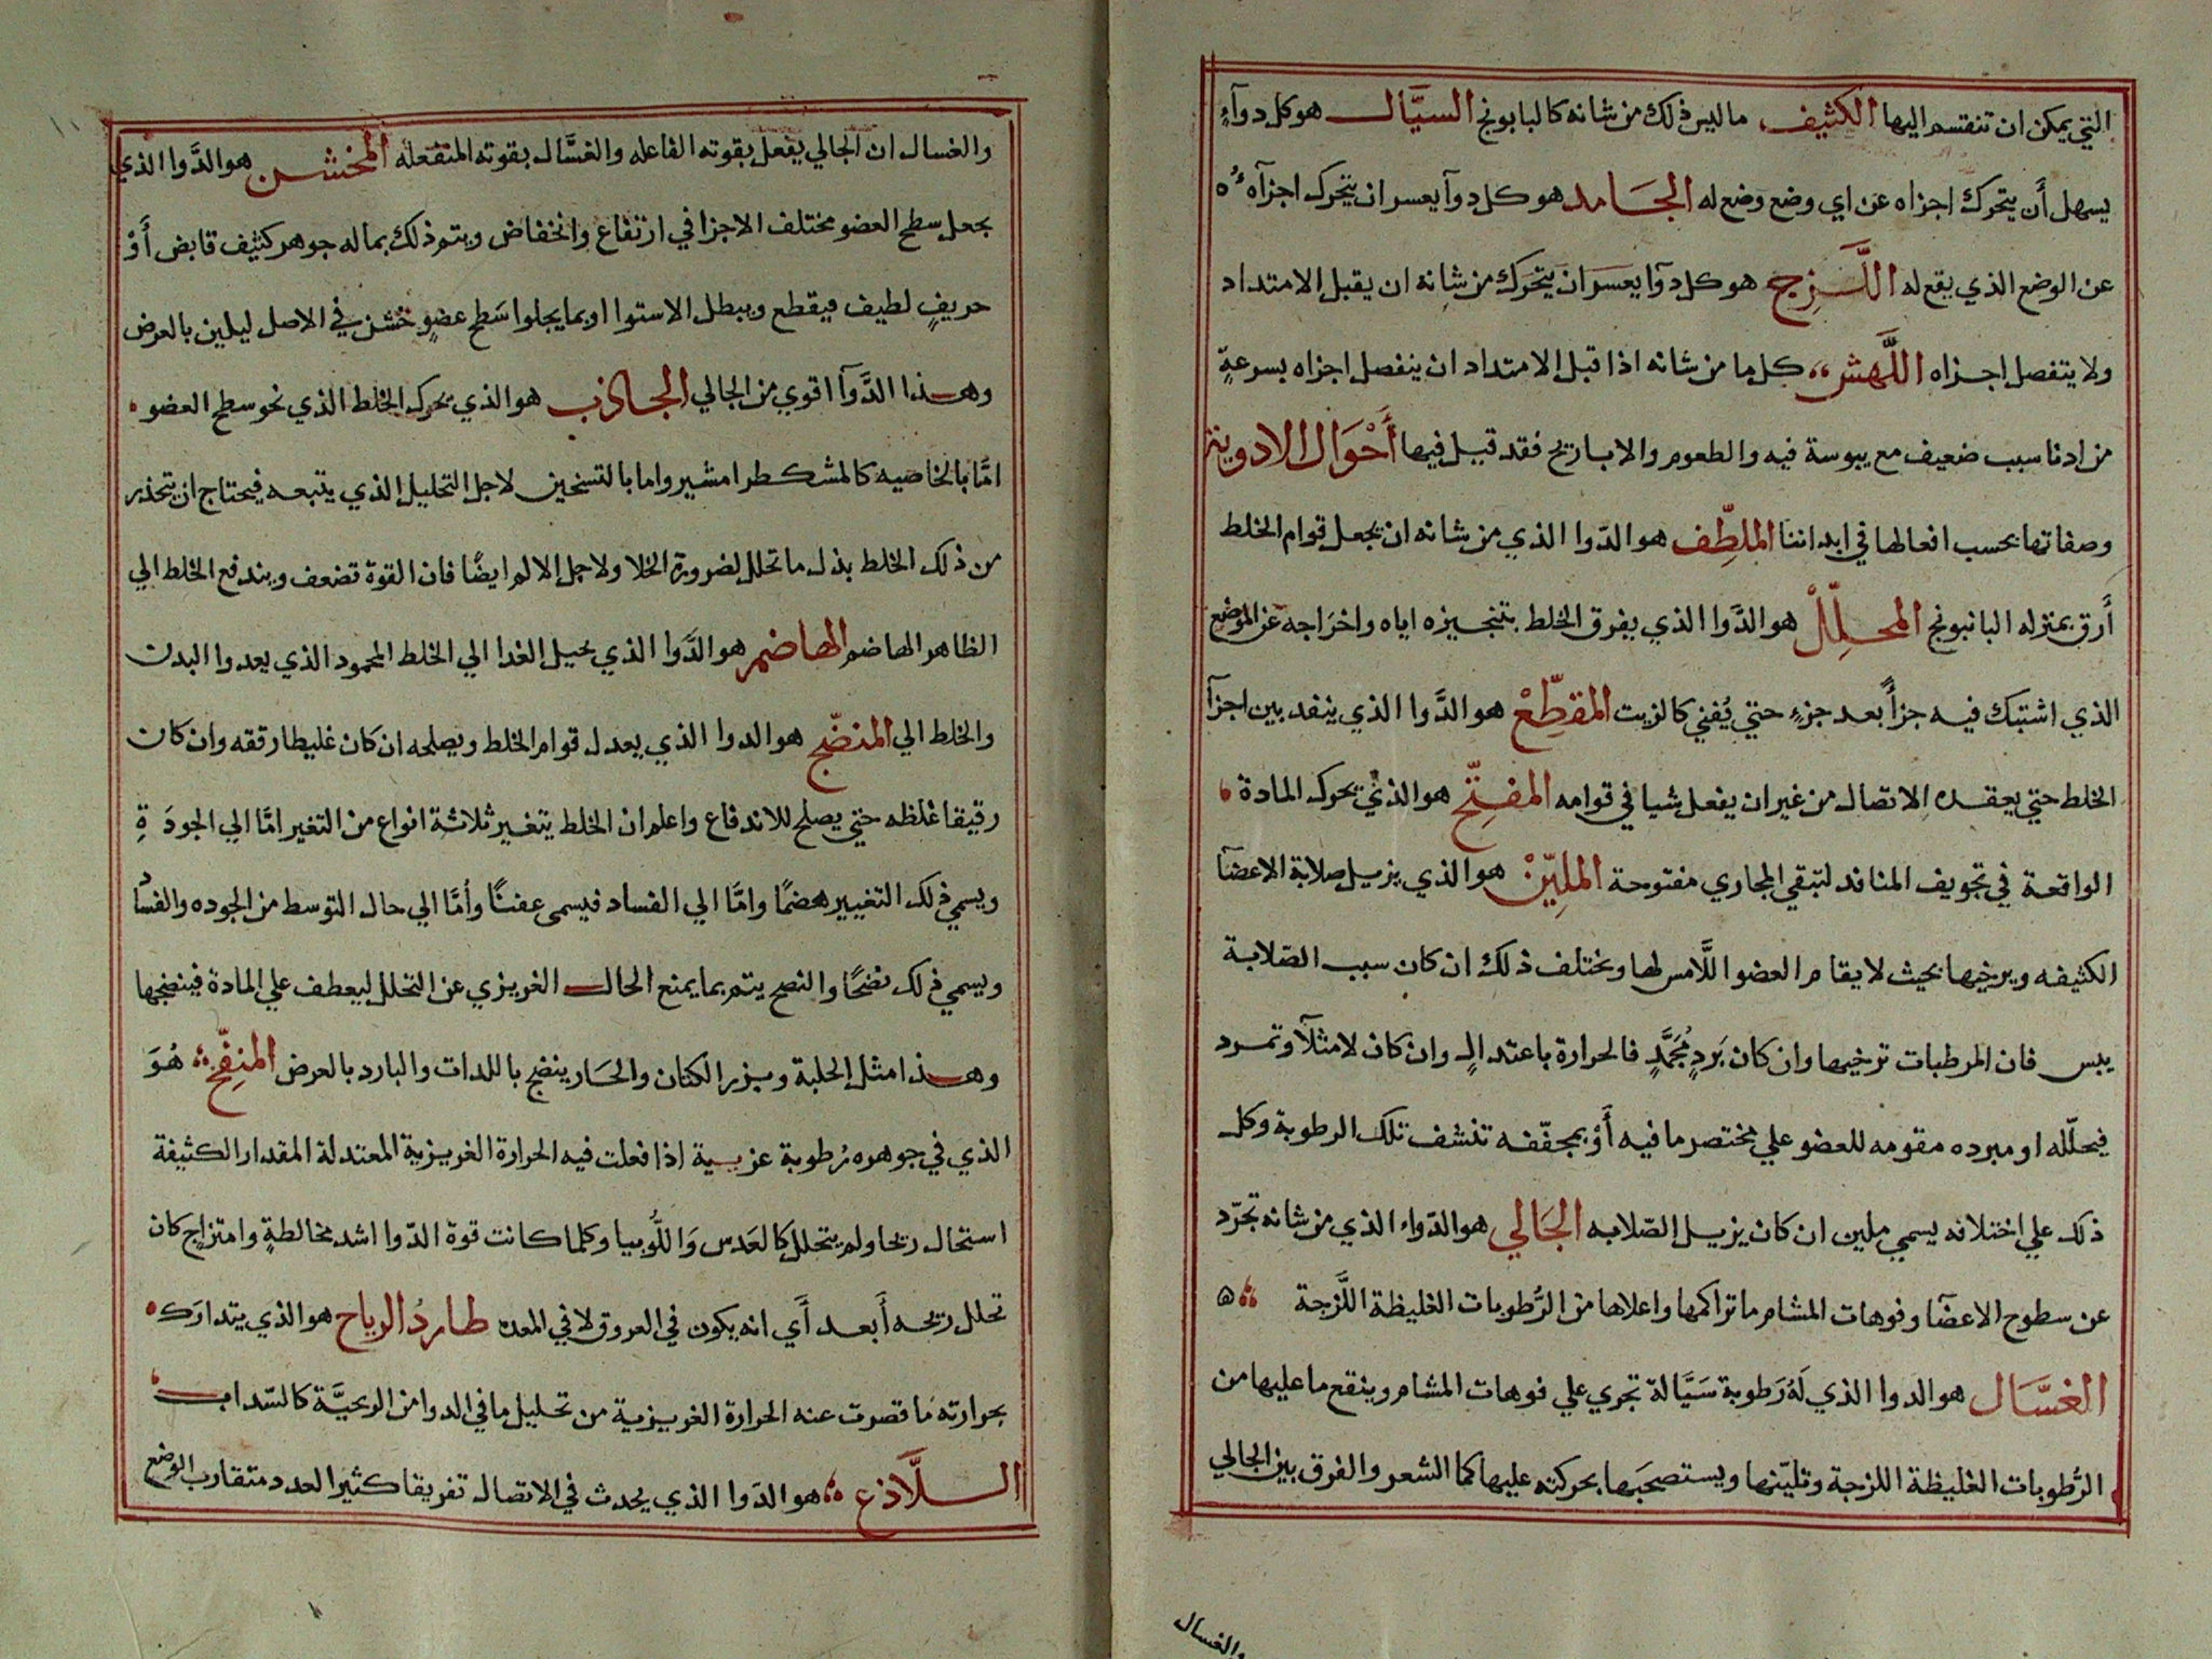 التي يمكن ان تنقسم اليها الكثيف ما ليس ذلك من شانه كالبابونج السيَّال هو كل دوآءٍ
يسهل أن يتحرك اجزاه عن اي وضع وضع له الجامد هو كل دوآ يعسر ان يتحرك اجزآه
عن الوضع الذي يقع له اللَّزِج هو كل دوآ يعسر ان يتحرك من شانه ان يقبل الامتداد
ولا يتفصل اجزاه اللَّهش كل ما من شانه اذا قبل الامتداد ان ينفصل اجزاه بسرعةٍ
من ادنا سبب ضعيف مع يبوسة فيه والطعوم والابباريح فقد قيل فيها أَحْوَال الادوية
وصفاتها بحسب افعالها في ابداننا الملطِّف هو الدّوا الذي من شانه ان يجعل قوام الخلط
أَرق بمنزله البانبونج المحلِّلْ هو الدَّوا الذي يفرق الخلط بتنجيزه اياه واخراجه عن الموضع
الذي اشتبك فيه جزأً بعد جزءٍ حتي يُفني كالزيت المقطِّعْ هو الدَّوا الذي ينفد بين اجزآ
الخلط حتي يعقده الاتصال من غير ان يفعل شيا في قوامه المفتِّح هو الذي يحرك المادة
الواقعة في تجويف المنافد لتبقي المجاري مفتوحة الملِيّنْ هو الذي يزيل صلابة الاعضآ
الكثيفه ويرخيها بحيث لا يقام العضو اللَّامس لها ويختلف ذلك ان كان سبب الصّلابة
يبس فان المرطبات ترخيها وان كان بَردٍ مُجمَّدٍ فالحرارة باعتدالٍ وان كان لامثلآ وتمرد
فيحلّله او مبرده مقومه للعضو علي مختصر ما فيه أَوْ بمجفّفه تنشف تلك الرطوبة وكل
ذلك علي اختلانه يسمي ملين ان كان يزيل الصّلابه الجَالي هو الدّواء الذي من شانه تجرّد
عن سطوح الاعضآ وفوهات المشام ما تراكمها واعلاها من الرُّطوبات الغليظة اللَّزجة ۵
الغسَّال هو الدوا الذي لَهُ رَطوبة سَيَّالة تجري علي فوهات المشام وينقع ما عليها من
الرُّطوبات الغليظة اللزجة وتليّنها ويستصحبَها بحركته عليها كما الشعر والفرق بين الجالي
والغسال
والغسال ان الجالي يفعل بقوته الفاعله والغسَّال بقوته المنفعله المخشن هو الدَّوا الذي
يجعل سطح العضو مختلف الاجزا في ارتفاع وانخفاض ويتم ذلك بما له جوهر كثيف قابض أَوْ
حريفٍ لطيف فيقطع ويبطل الاستوا او بما يجلوا سَطح عضوٍ خشن في الاصل ليلين بالعرض
وهذا الدَّوآ اقوي من الجالي الجاذب هو الذي يحرك الخلط الذي نحو سطح العضو
امَّا بالخاصيه كالمشكطرامشير واما بالتسخين لاجل التحليل الذي يتبعه فيحتاج ان يتحذر
من ذلك الخلط بذل ما تحلل لضرورة الخلا ولاجل الالم ايضًا فان القوة تضعف ويندفع الخلط الي
الظاهر الهاضم الهاضم هو الدَّوا الذي يحيل الغدا الي الخلط المحمود الذي يعدوا البدن
والخلط الي المنضّج هو الدوا الذي يعدل قوام الخلط ويصلحه ان كان غليطا رققه وان كان
رقيقا غلظه حتي يصلح للاندفاع واعلم ان الخلط يتغير ثلاثة انواع من التغير امَّا الي الجودَةِ
ويسمي ذلك التغيير هضمًا وامَّا الي الفساد فيسمي عفنًا وأمَّا الي حال التوسط من الجوده والفساد
ويسمي ذلك نضجًا والنضج يتم بما يمنع الحال الغريزي عن التحلل ليعطف علي المادة فينضجها
وهذا مثل الحلبة وبزر الكتان والحَار ينضج باللدات والبارد بالعرض المنفِّخ هُوَ
الذي في جوهره رُطوبة عزبية اذا فعلت فيه الحرارة الغريزية المعتدلة المقدار الكثيفة
استحال ريحا ولم يتحلل كالعَدس وَاللُّوبيا وكلما كانت قوة الدّوا اشد مخالطةٍ وامتزاج كان
تحلل ريحه أَبعد أَي انه يكون في العروق لا في المعده طاردُ الرياح هو الذي يتدارَك
بحرارته ما قصرت عنه الحرارة الغريزية من تحليل ما في الدوا من الريحيَّة كالسّداب
اللَّاذع هو الدّوا الذي يحدث في الاتصال تفريقا كثير العدد متقارب الوضع